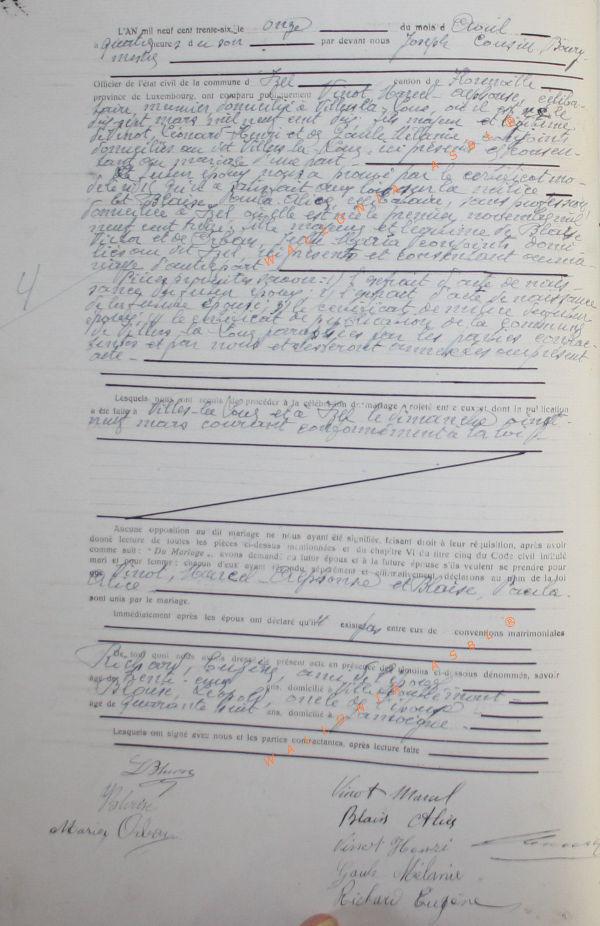 L'AN mil neuf cent trente-six, le onze du mois d'Avril
à quatre heures du soir par devant nous Joseph Consin Bourg-
mestre
Officier de l'état civil de la commune d'Izel canton de Florenville
province de Luxembourg, ont comparu publiquement Vinot, Marcel-Alphonse, céliba-
taire, meunier domicilié à Villers-la-Loue, où il est né le
mars mil neuf cent dix, fils majeur et légitime
de Vinot, Léonard-Henri et de Gaule Mélanie conjoints
domiciliés au dit Villers-la-Loue, ici présents et consen-
tant au mariage d'une part;
Le futur époux nous a prouvé par le certificat mo-
dèle qu'il a satisfait aux lois sur la milice
Et Blaise, Paula-Alice, célibataire, sans profession,
domiciliée à Izel où elle est née le premier novembre mil
neuf cent treize, fille majeure et légitime de Blaise
et de Orban, Maria conjoints, domi-
ciliés au dit Izel, ici présents et consentant au ma-
riage d'autre part
Pièces produites savoir: 1) l'extrait d'acte de nais-
sance du futur époux; 2) l'extrait d'acte de naissance
de la future épouse; 3) le certificat de milice du futur
époux; 4) le certificat de publication de la commune
de Villers-la-Loue paraphées par les parties contrac-
tantes et par nous et resteront annexées au présent
acte
4
Lesquels nous ont requis de procéder à la célébration du mariage projeté entre eux et dont la publication
a été faite à Villers-la-Loue et à Izel le dimanche vingt-
neuf mars courant conformément à la loi
Aucune opposition au dit mariage ne nous ayant été signifiée, faisant droit à leur réquisition, après avoir
donné lecture de toutes les pièces ci-dessus mentionnées et du chapitre VI du titre cinq du Code civil intitulé
comme suit: "Du Mariage", avons demandé au futur époux et à la future épouse s'ils veulent se prendre pour
mari et pour femme; chacun d'eux ayant répondu séparément et affirmativement, déclarons au nom de la loi
que Vinot, Marcel-Alphonse et Blaise, Paula-
Alice
sont unis par le mariage.
Immédiatement après les époux ont déclaré qu'il existe pas entre eux de conventions matrimoniales
De tout quoi nous avons dressé le présent acte en présence des témoins ci-dessous dénommés, savoir
Richard, Eugène, ami de l'époux
âgé de trente-cinq ans, domicilié à
Blaise, Léopold, oncle de l'épouse
âgé de quarante huit ans, domicilié à Jamoigne
Lesquels ont signé avec nous et les parties contractantes, après lecture faite
L Blaise
Vinot Marcel
Blais Alice
Maria Orban
Vinot Henri
Gaule Mélanie
Richard Eugène
WALLONIA ASBL ®
WALLONIA ASBL ®